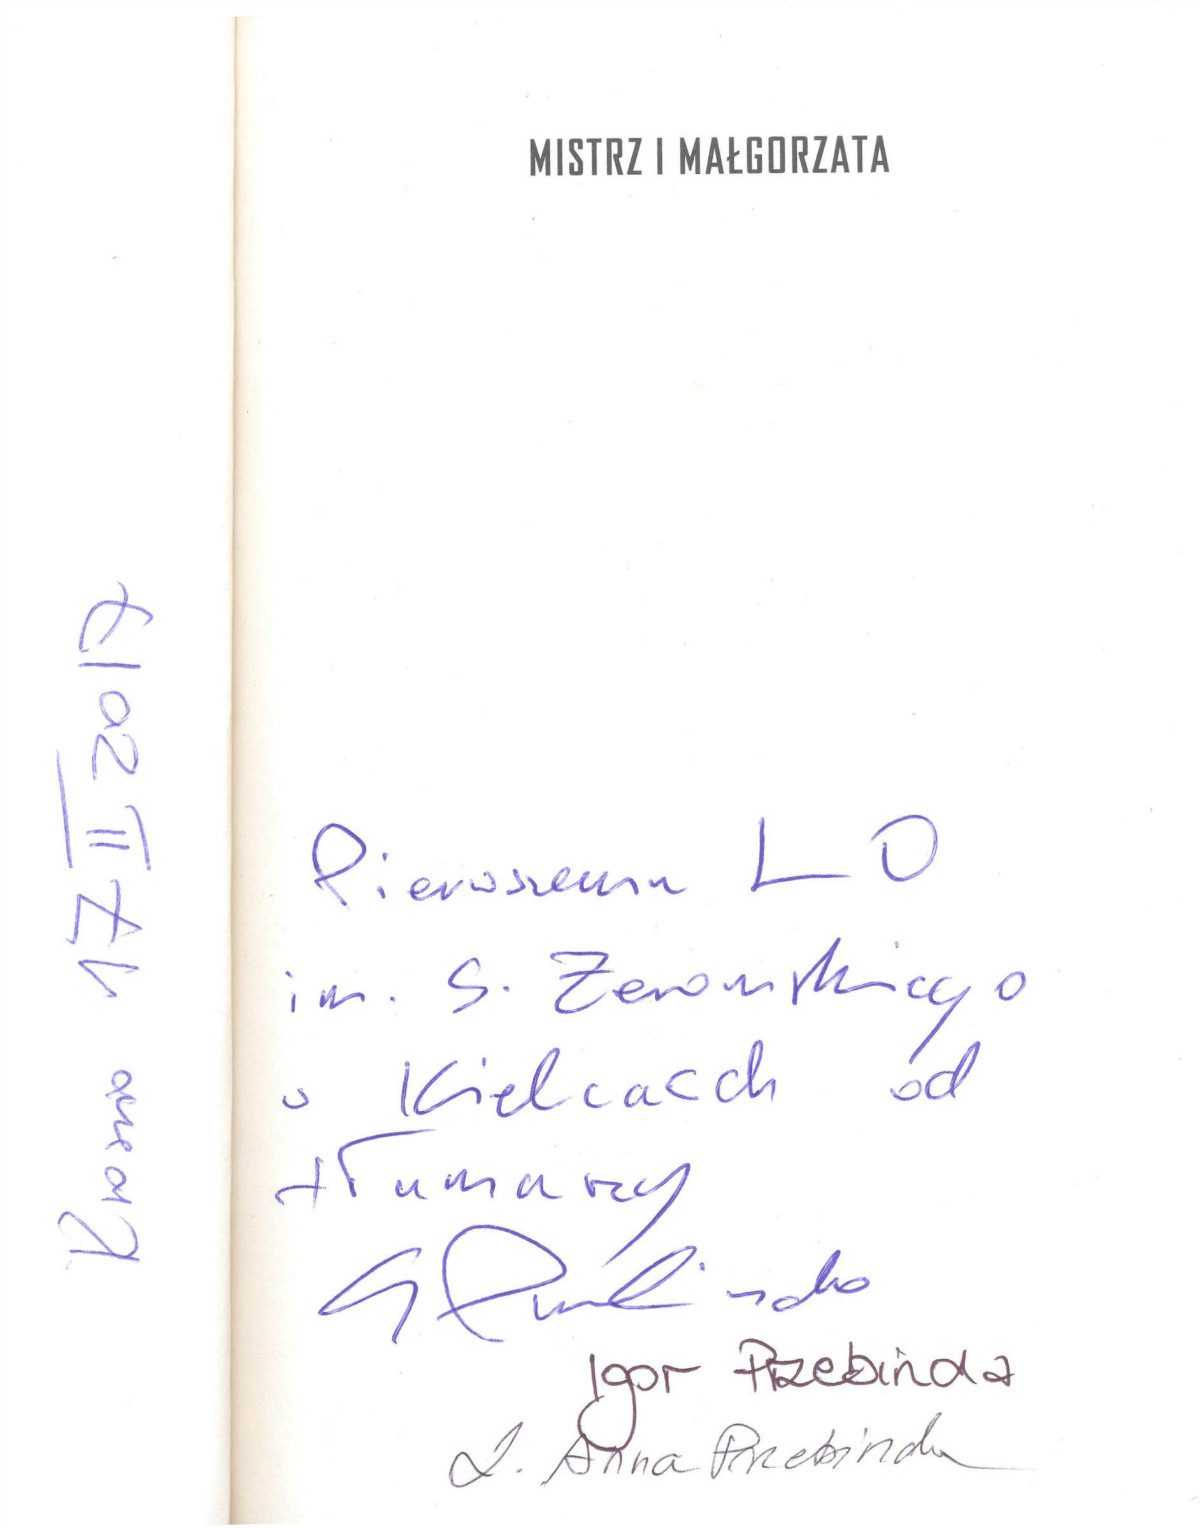 MISTRZ I MAŁGORZATA
Pierwszemu LO
im. S. Żeromskiego
w Kielcach od
tłumaczy
G Przebinda
Igor Przebinda
L. Anna Przebinda
Krosno 17 II 2017